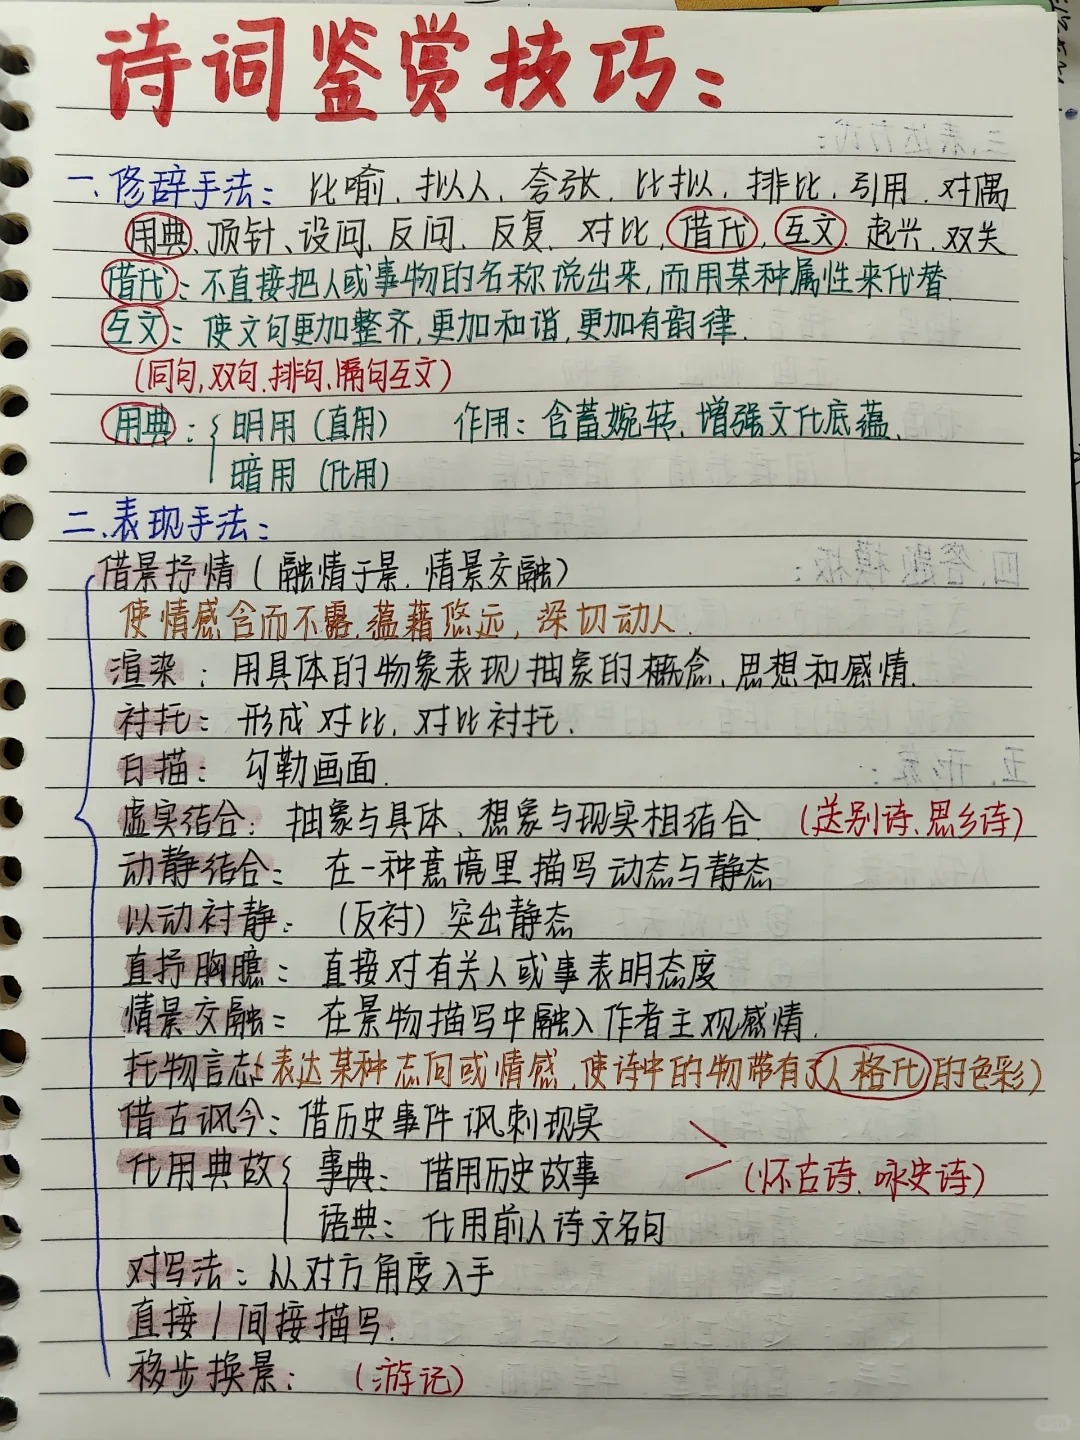 诗词鉴赏技巧：
一、修辞手法：比喻、拟人、夸张、比拟、排比、引用、对偶
用典、顶针、设问、反问、反复、对比、借代、互文、起兴、双关
借代：不直接把人或事物的名称说出来，而用某种属性来代替.
互文：使文句更加整齐，更加和谐，更加有韵律.
(同句，双句，排句，隔句互文)
用典：{明用（直用） 作用：含蓄婉转，增强文化底蕴.
暗用（化用）
二、表现手法：
借景抒情（融情于景，情景交融）
使情感含而不露，蕴藉悠远，深切动人.
渲染：用具体的物象表现抽象的概念、思想和感情.
衬托：形成对比，对比衬托.
白描：勾勒画面.
虚实结合：抽象与具体、想象与现实相结合.（送别诗、思乡诗）
动静结合：在一种意境里描写动态与静态
以动衬静：（反衬）突出静态
直抒胸臆：直接对有关人或事表明态度
情景交融：在景物描写中融入作者主观感情.
托物言志（表达某种志向或情感，使诗中的物带有了人格化的色彩）
借古讽今：借历史事件讽刺现实
化用典故{事典：借用历史故事 （怀古诗、咏史诗）
语典：化用前人诗文名句
对写法：从对方角度入手
直接/间接描写.
移步换景：（游记）